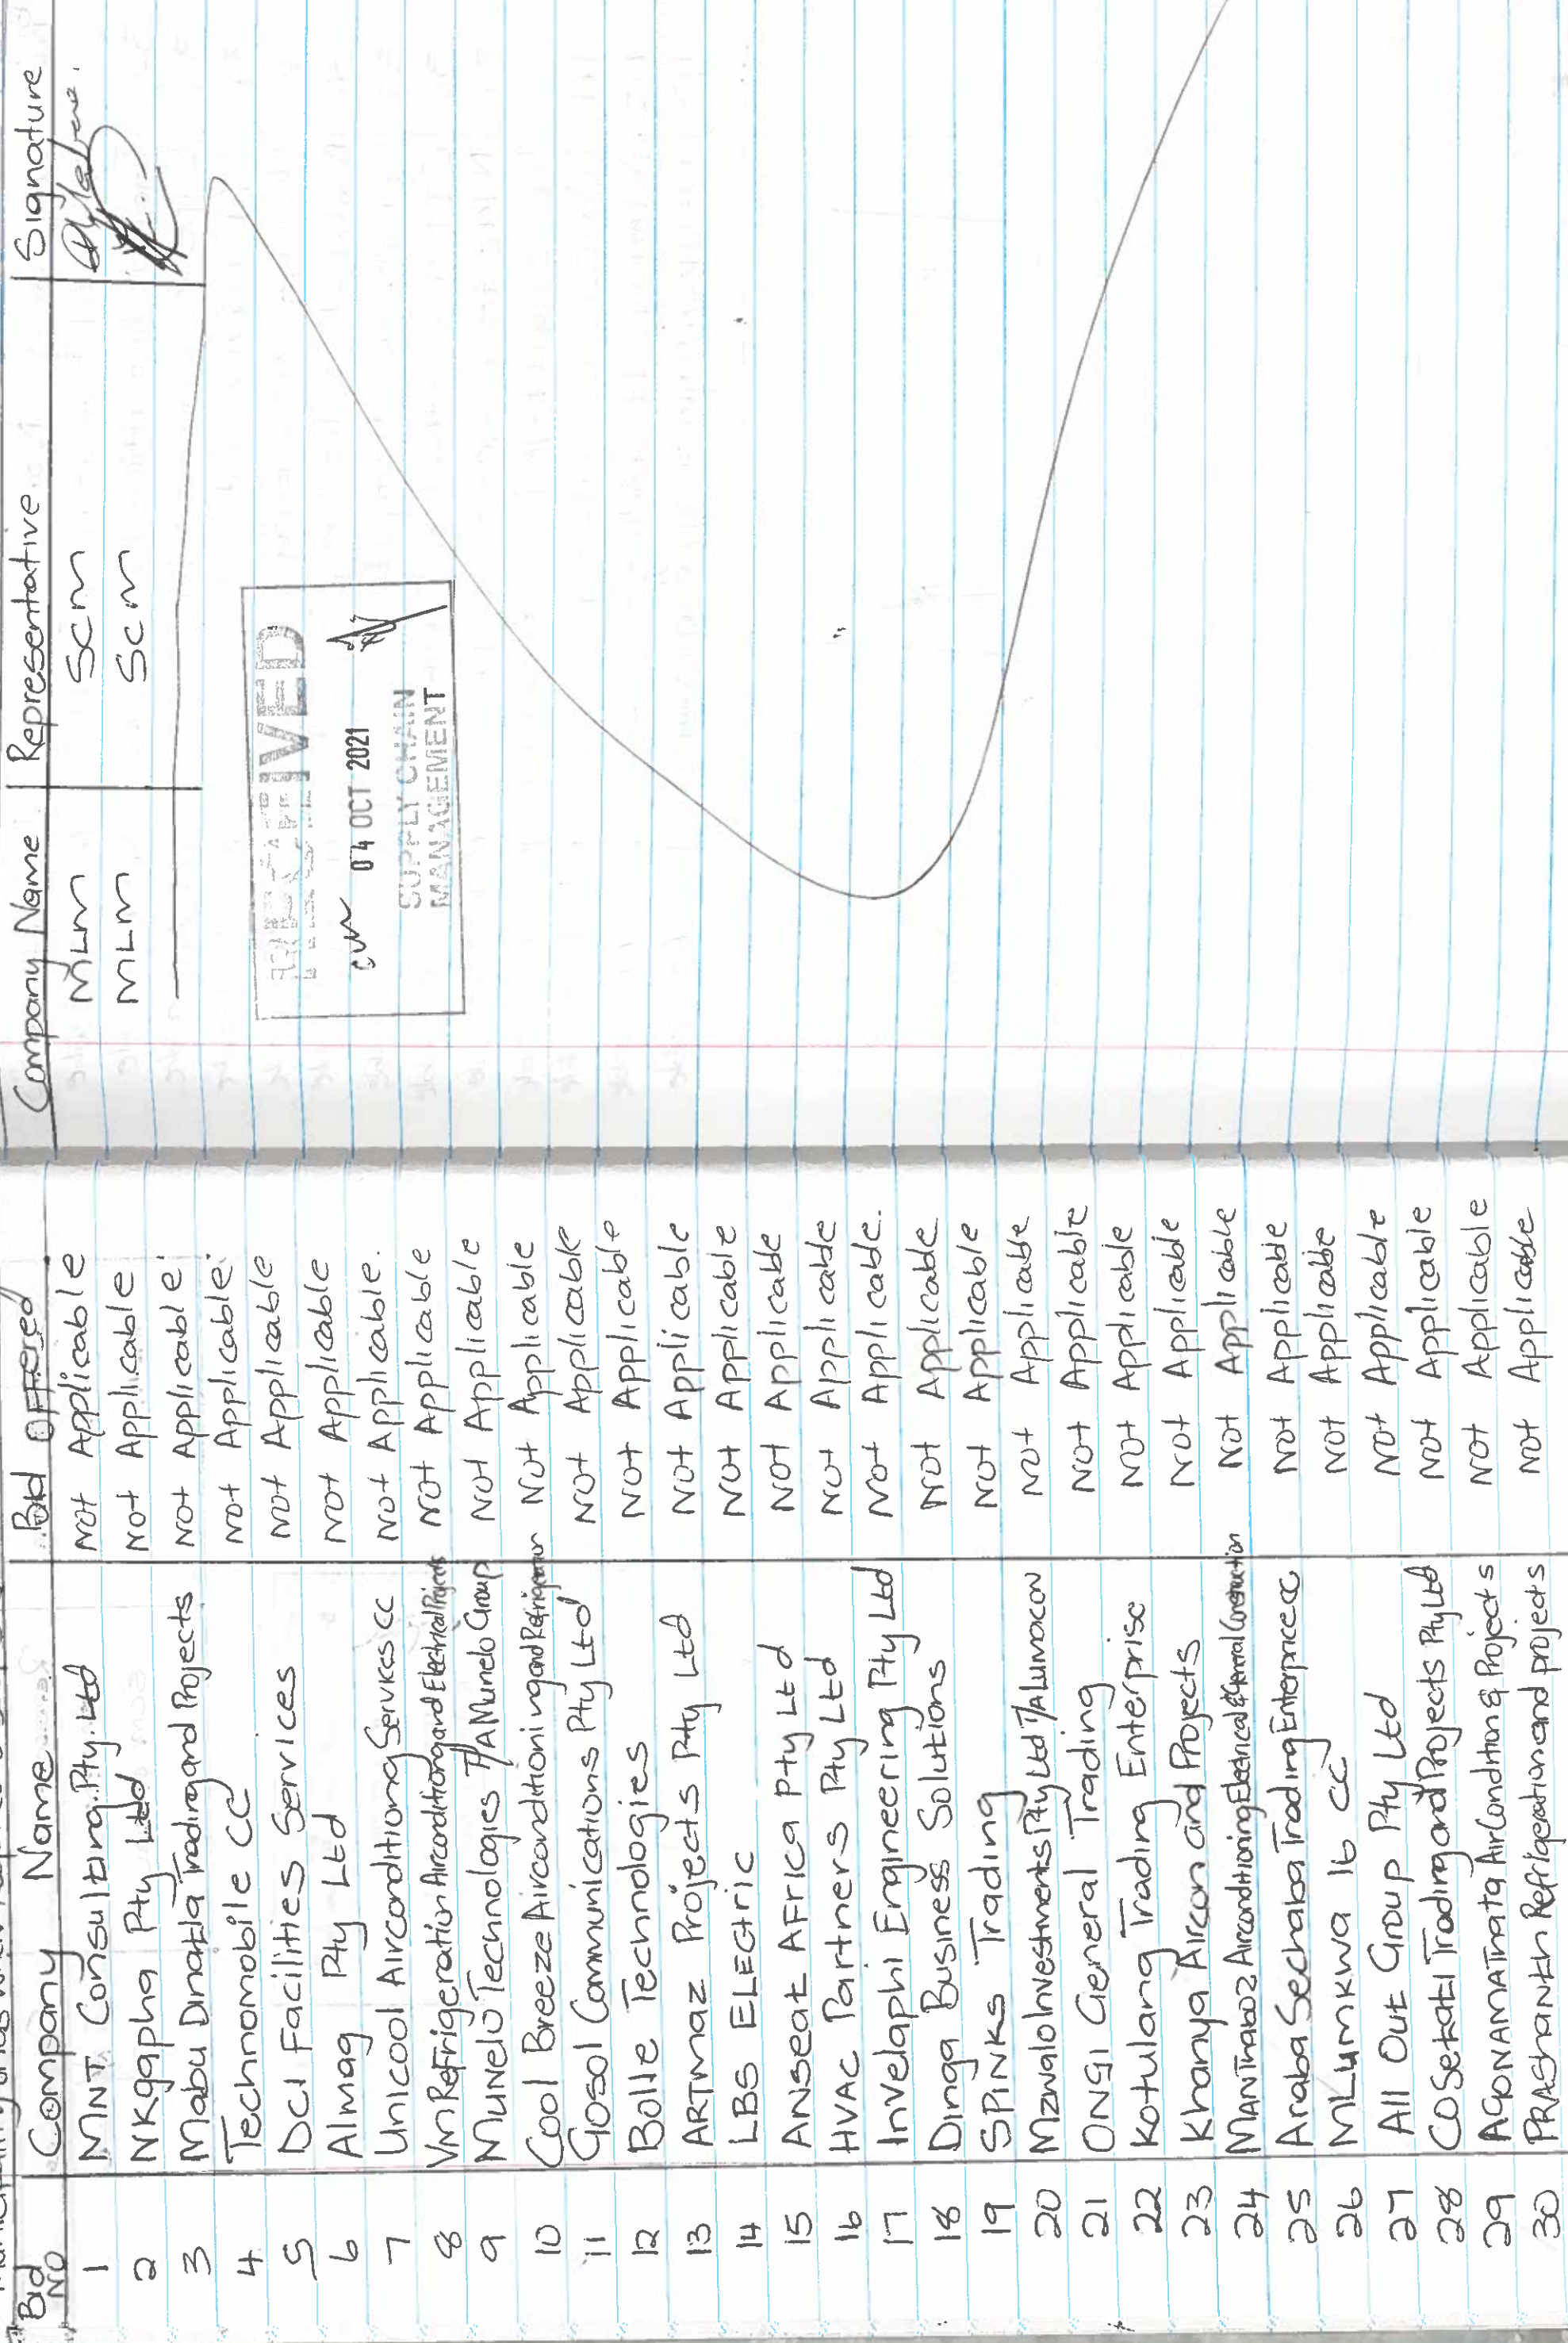 Bid No Company Name Bid Offered
1 MNT Consulting Pty Ltd Not Applicable
2 NKgapha Pty Ltd Not Applicable
3 Mabu Dinatla Trading and Projects Not Applicable
4 Technomobile CC Not Applicable
5 DCI Facilities Services Not Applicable
6 Almag Pty Ltd Not Applicable
7 Unicool Airconditioning Services CC Not Applicable.
8 Vm Refrigeration Airconditioning and Electrical Projects Not Applicable
9 Munelo Technologies T/A Munelo Group Not Applicable
10 Cool Breeze Airconditioning and Refrigerator Not Applicable
11 Gosol Communications Pty Ltd Not Applicable
12 Bolite Technologies Not Applicable
13 ARTMAZ Projects Pty Ltd Not Applicable
14 LBS ELECtric Not Applicable
15 ANSEAT AFRICA Pty Ltd Not Applicable
16 HVAC Partners Pty Ltd Not Applicable
17 Invelaphi Engineering Pty Ltd Not Applicable.
18 Dinga Business Solutions Not Applicable
19 SPINKS Trading Not Applicable
20 Mzwalo Investments Pty Ltd T/A Lumacon Not Applicable
21 ONGI General Trading Not Applicable
22 Kotulang Trading Enterprise Not Applicable
23 Khanya Aircon and Projects Not Applicable
24 Airconditioning Electrical & General Construction Not Applicable
25 Araba Sechaba Trading Enterprice CC Not Applicable
26 MLumkwa 16 CC Not Applicable
27 All Out Group Pty Ltd Not Applicable
28 COSekati Trading and Projects Pty Ltd Not Applicable
29 AGONAMATHATA Air Condition & Projects Not Applicable
30 PRAShanth Refrigeration and projects Not Applicable
Company Name Representative Signature
MLM SCM
MLM SCM
RECEIVED
04 OCT 2021
SUPPLY CHAIN
MANAGEMENT